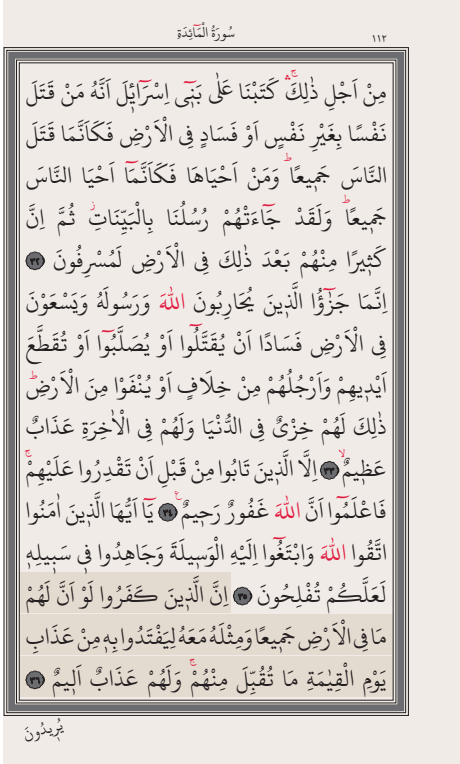 سُورَةُ الْمَٓائِدَةِ ١١٢
مِنْ اَجْلِ ذٰلِكَۚۛ كَتَبْنَا عَلٰى بَنٖٓي اِسْرَٓائٖلَ اَنَّهُ مَنْ قَتَلَ
نَفْسًا بِغَيْرِ نَفْسٍ اَوْ فَسَادٍ فِي الْاَرْضِ فَكَاَنَّمَا قَتَلَ
النَّاسَ جَمٖيعًاۜ وَمَنْ اَحْيَاهَا فَكَاَنَّمَٓا اَحْيَا النَّاسَ
جَمٖيعًاۜ وَلَقَدْ جَٓاءَتْهُمْ رُسُلُنَا بِالْبَيِّنَاتِۘ ثُمَّ اِنَّ
كَثٖيرًا مِنْهُمْ بَعْدَ ذٰلِكَ فِي الْاَرْضِ لَمُسْرِفُونَ ٣٢
اِنَّمَا جَزٰٓؤُا الَّذٖينَ يُحَارِبُونَ اللّٰهَ وَرَسُولَهُ وَيَسْعَوْنَ
فِي الْاَرْضِ فَسَادًا اَنْ يُقَتَّلُٓوا اَوْ يُصَلَّبُٓوا اَوْ تُقَطَّعَ
اَيْدٖيهِمْ وَاَرْجُلُهُمْ مِنْ خِلَافٍ اَوْ يُنْفَوْا مِنَ الْاَرْضِۜ
ذٰلِكَ لَهُمْ خِزْيٌ فِي الدُّنْيَا وَلَهُمْ فِي الْاٰخِرَةِ عَذَابٌ
عَظٖيمٌۙ ٣٣ اِلَّا الَّذٖينَ تَابُوا مِنْ قَبْلِ اَنْ تَقْدِرُوا عَلَيْهِمْۚ
فَاعْلَمُٓوا اَنَّ اللّٰهَ غَفُورٌ رَحٖيمٌࣖ ٣٤ يَٓا اَيُّهَا الَّذٖينَ اٰمَنُوا
اتَّقُوا اللّٰهَ وَابْتَغُٓوا اِلَيْهِ الْوَسٖيلَةَ وَجَاهِدُوا فٖي سَبٖيلِهٖ
لَعَلَّكُمْ تُفْلِحُونَ ٣٥ اِنَّ الَّذٖينَ كَفَرُوا لَوْ اَنَّ لَهُمْ
مَا فِي الْاَرْضِ جَمٖيعًا وَمِثْلَهُ مَعَهُ لِيَفْتَدُوا بِهٖ مِنْ عَذَابِ
يَوْمِ الْقِيٰمَةِ مَا تُقُبِّلَ مِنْهُمْۚ وَلَهُمْ عَذَابٌ اَلٖيمٌ ٣٦
يُرٖيدُونَ